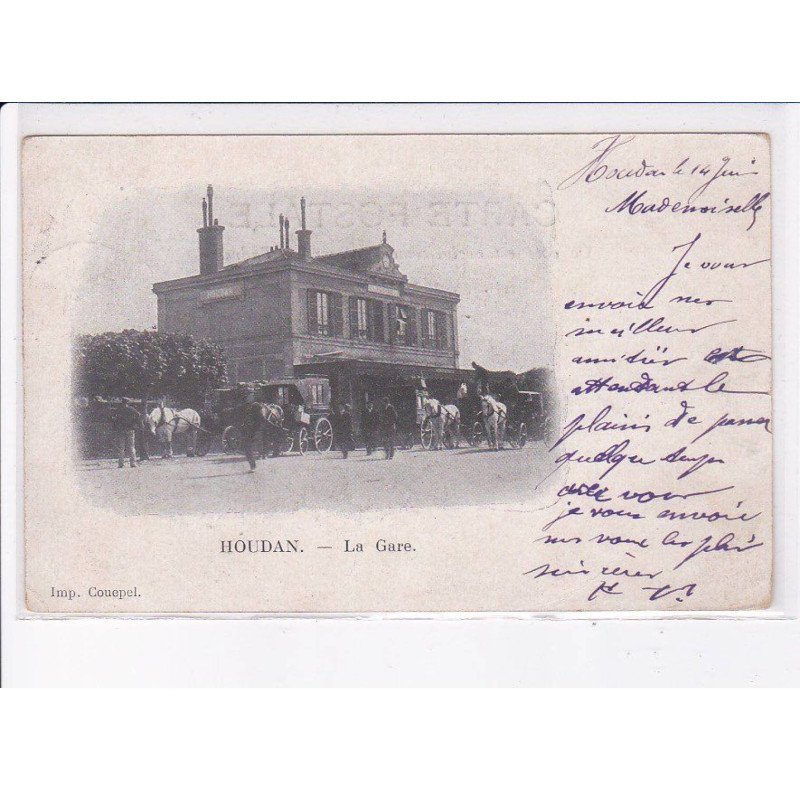 Houdan le 14 Juin
Mademoiselle
Je vous
envoie mes
meilleur
amitiés
attendant le
plaisir de passer
quelque temps
avec vous
je vous envoie
mes vœux les plus
sincères
HOUDAN. — La Gare.
Imp. Couepel.
CARTE POSTALE